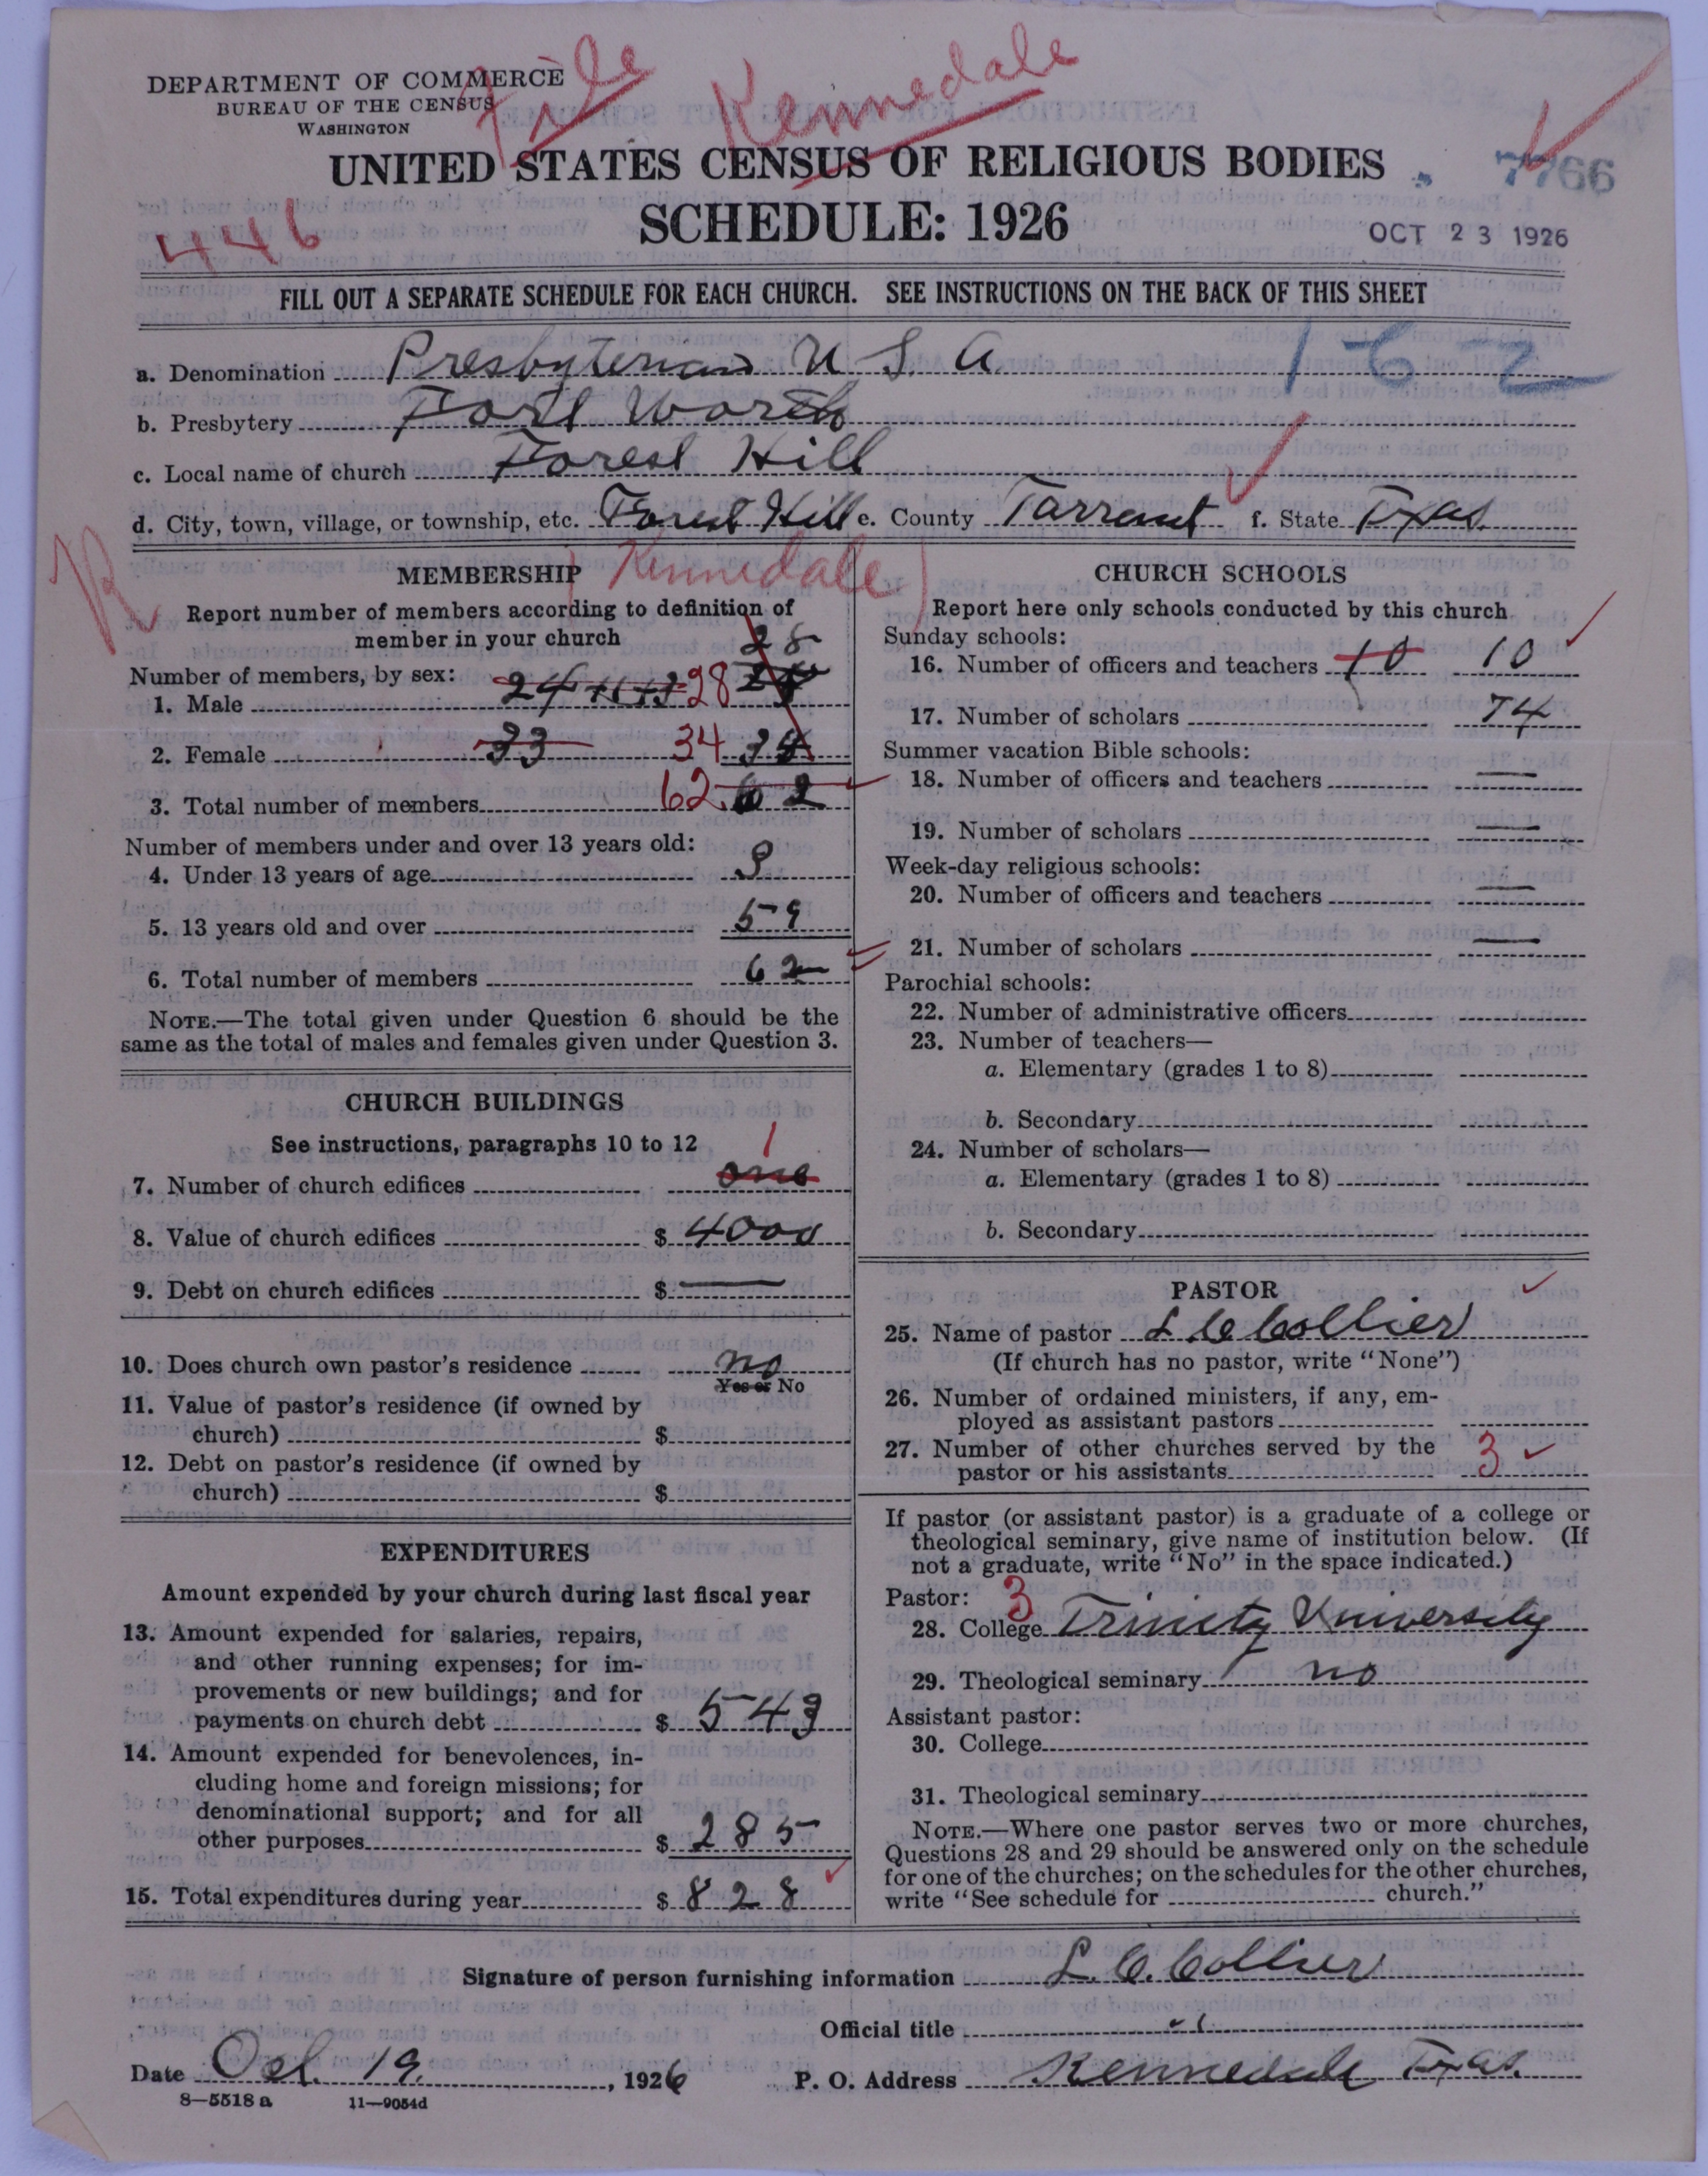 File Kennedale
DEPARTMENT OF COMMERCE
BUREAU OF THE CENSUS
WASHINGTON
UNITED STATES CENSUS OF RELIGIOUS BODIES
7766
SCHEDULE: 1926
446
OCT 23 1926
FILL OUT A SEPARATE SCHEDULE FOR EACH CHURCH. SEE INSTRUCTIONS ON THE BACK OF THIS SHEET
a. Denomination Presbyterian U S. A 162
b. Presbytery Fort Worth
c. Local name of church Forest Hill
d. City, town, village, or township, etc. Forest Hill e. County Tarrant f. State Texas
R (Kennedale)
MEMBERSHIP
Report number of members according to definition of
member in your church
28
Number of members, by sex:
1. Male 24 +1+3 28
2. Female 33 34 34
3. Total number of members 62 62
Number of members under and over 13 years old:
4. Under 13 years of age 3
5. 13 years old and over 59
6. Total number of members 62
NOTE.—The total given under Question 6 should be the
same as the total of males and females given under Question 3.
CHURCH BUILDINGS
See instructions, paragraphs 10 to 12
1
7. Number of church edifices one
8. Value of church edifices $ 4000
9. Debt on church edifices $ —
10. Does church own pastor's residence no
Yes or No
11. Value of pastor's residence (if owned by
church) $
12. Debt on pastor's residence (if owned by
church) $
EXPENDITURES
Amount expended by your church during last fiscal year
13. Amount expended for salaries, repairs,
and other running expenses; for im-
provements or new buildings; and for
payments on church debt $ 543
14. Amount expended for benevolences, in-
cluding home and foreign missions; for
denominational support; and for all
other purposes $ 285
15. Total expenditures during year $ 828
CHURCH SCHOOLS
Report here only schools conducted by this church
Sunday schools:
16. Number of officers and teachers 10 10
17. Number of scholars 74
Summer vacation Bible schools:
18. Number of officers and teachers —
19. Number of scholars —
Week-day religious schools:
20. Number of officers and teachers —
21. Number of scholars —
Parochial schools:
22. Number of administrative officers
23. Number of teachers—
a. Elementary (grades 1 to 8)
b. Secondary
24. Number of scholars—
a. Elementary (grades 1 to 8)
b. Secondary
PASTOR
25. Name of pastor L C Collier
(If church has no pastor, write "None")
26. Number of ordained ministers, if any, em-
ployed as assistant pastors
27. Number of other churches served by the
pastor or his assistants 3
If pastor (or assistant pastor) is a graduate of a college or
theological seminary, give name of institution below. (If
not a graduate, write "No" in the space indicated.)
Pastor: 3
28. College Trinity University
29. Theological seminary no
Assistant pastor:
30. College
31. Theological seminary
NOTE.—Where one pastor serves two or more churches,
Questions 28 and 29 should be answered only on the schedule
for one of the churches; on the schedules for the other churches,
write "See schedule for church."
Signature of person furnishing information L. C. Collier
Official title
Date Oct. 19, 1926 P. O. Address Kennedale Texas.
8—5518 a 11—9054d